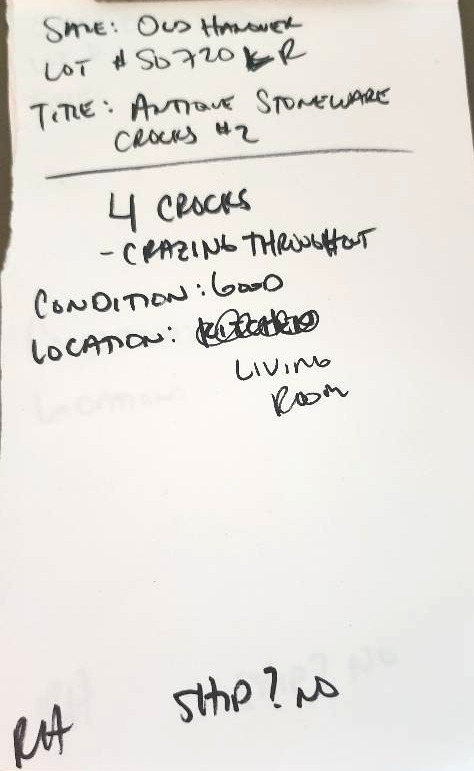 SALE: OLD HANOVER
LOT # Sb720 LR
TITLE: ANTIQUE STONEWARE
CROCKS #2
4 CROCKS
- CRAZING THROUGHOUT
CONDITION: GOOD
LOCATION:
LIVING
ROOM
SHIP? NO
RH